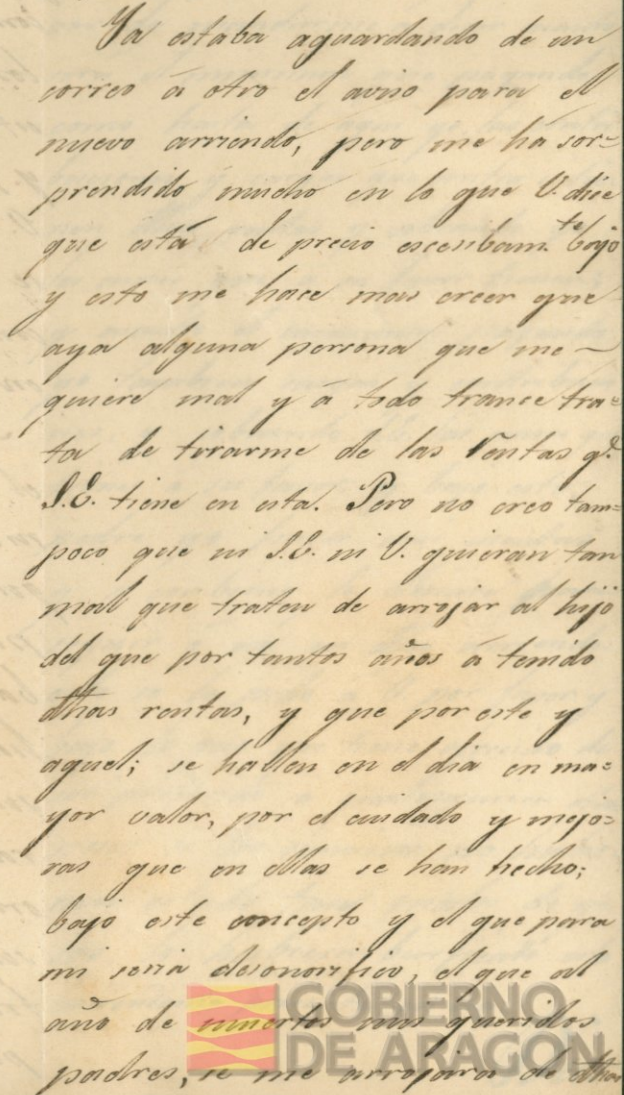 Ya estaba aguardando de un
correo á otro el aviso para el
nuevo arriendo, pero me há sor=
prendido mucho en lo que V. dice
que está de precio escesibam.te bajo
y esto me hace mas creer que
aya alguna persona que me
quiere mal y á todo trance tra=
ta de tirarme de las rentas q.e
S.E. tiene en esta. Pero no creo tam=
poco que ni S.E. ni V. quieran tan
mal que traten de arrojar al hijo
del que por tantos años á tenido
dhas rentas, y que por este y
aquel; se hallen en el dia en ma=
yor valor, por el cuidado y mejo=
ras que en ellas se han hecho;
bajo este concepto y el que para
mi seria desonorifico, el que al
año de muertos mis queridos
padres, se me arrojara de dhas
GOBIERNO
DE ARAGON